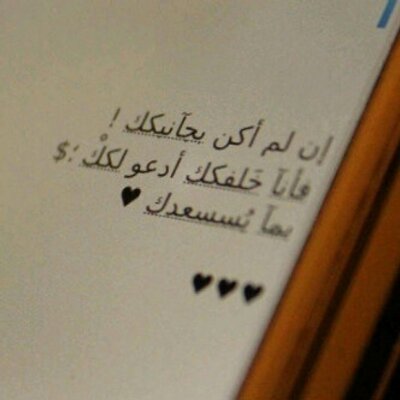 إن لم أكن بجآنبكك !
فأنآ خَلفكك أدعو لككْ ؛$
بمآ يُسسعدك ♥
♥♥♥